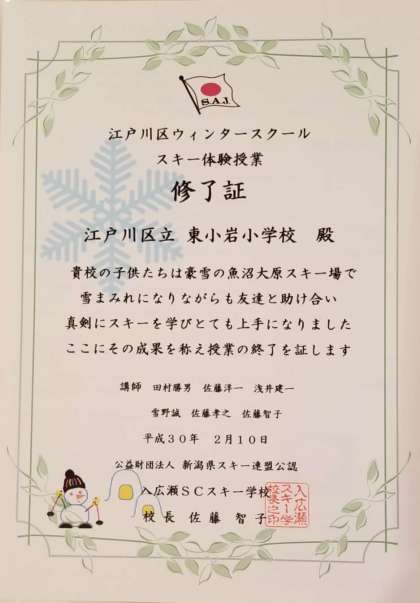 S.A.J.
江戸川区ウィンタースクール
スキー体験授業
修了証
江戸川区立 東小岩小学校 殿
貴校の子供たちは豪雪の魚沼大原スキー場で
雪まみれになりながらも友達と助け合い
真剣にスキーを学びとても上手になりました
ここにその成果を称え授業の終了を証します
講師 田村勝男 佐藤洋一 浅井建一
雪野誠 佐藤孝之 佐藤智子
平成30年 2月10日
公益財団法人 新潟県スキー連盟公認
入広瀬SCスキー学校
校長 佐藤 智子
入広瀬
スキー学
校長之印